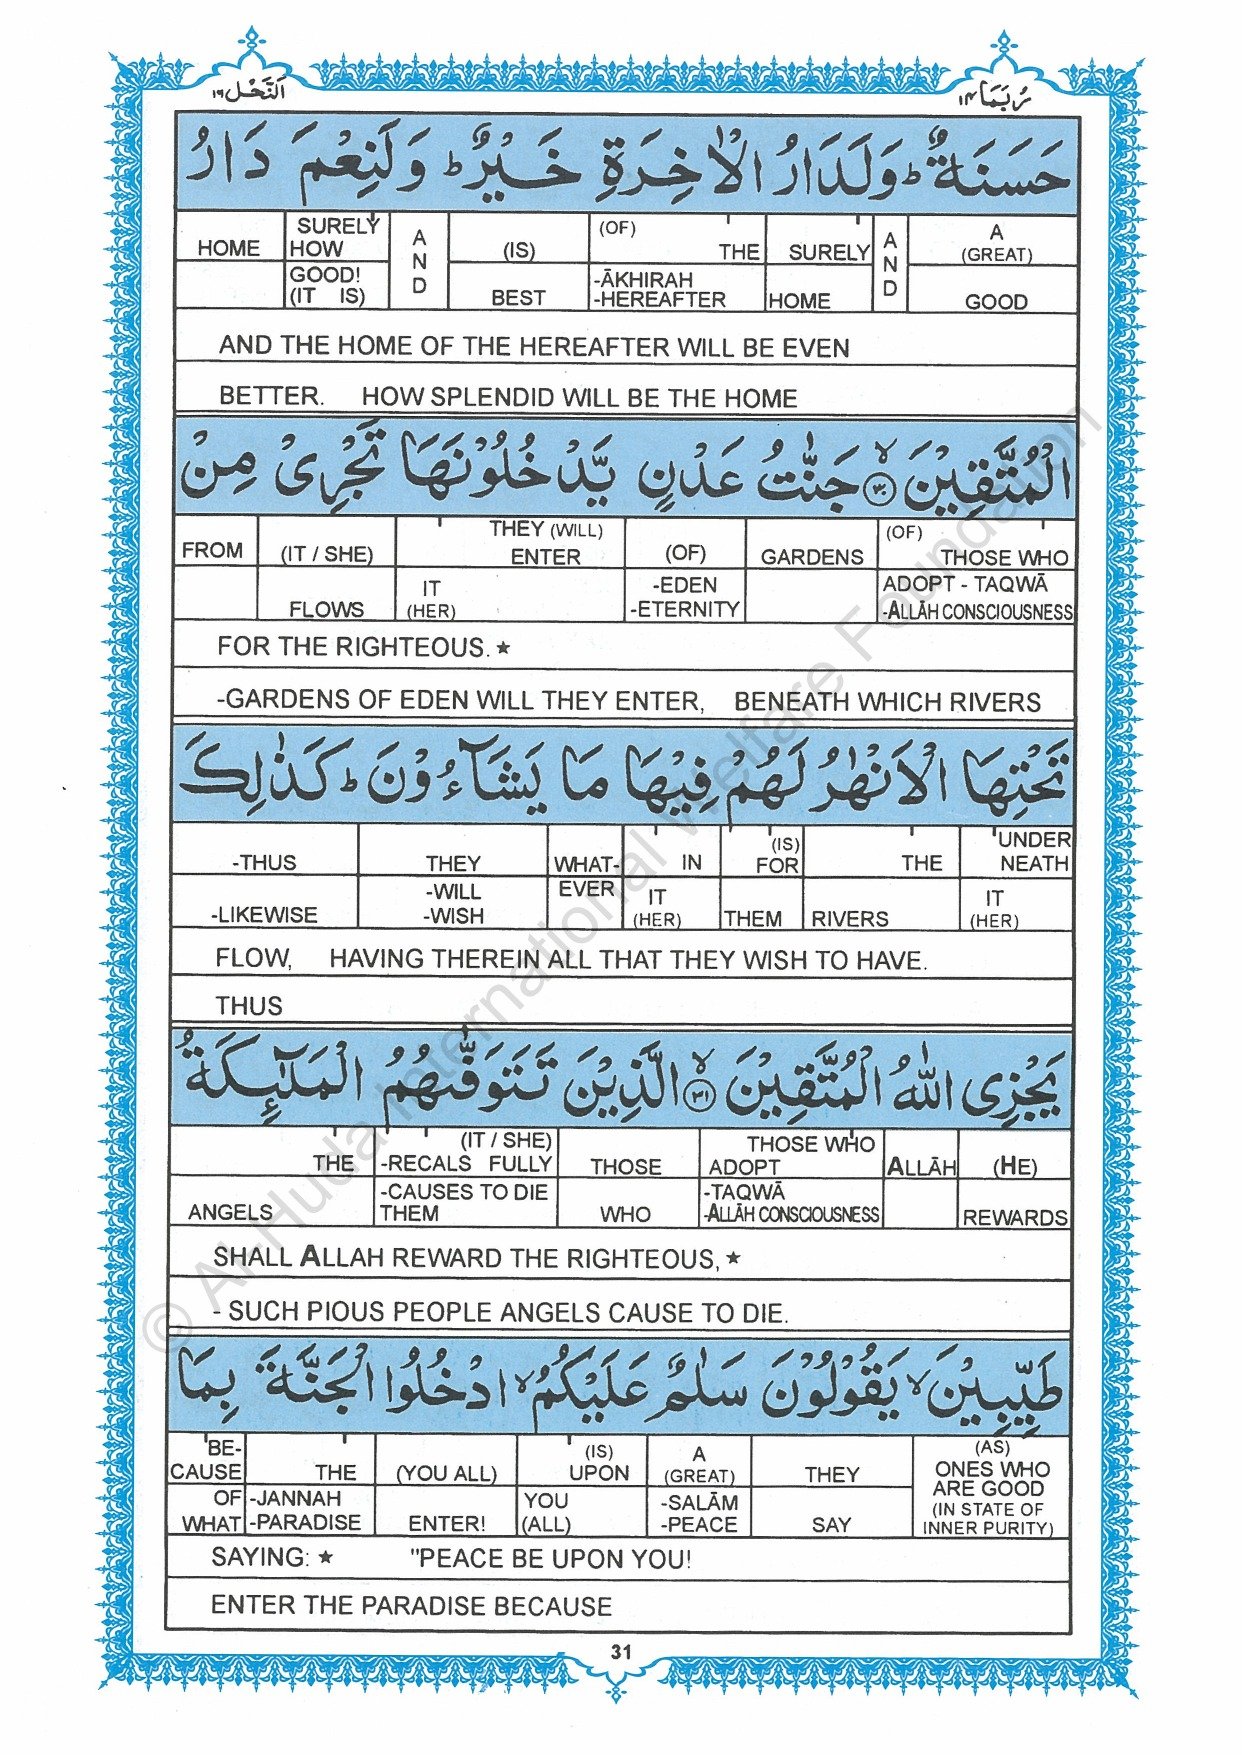 النَّحْل ١٦
رُبَمَا ١٤
حَسَنَةٌ ؕ وَلَدَارُ الْاٰخِرَةِ خَيْرٌ ؕ وَلَنِعْمَ دَارُ
HOME SURELY HOW AND (IS) (OF) THE SURELY AND A (GREAT)
GOOD! (IT IS) BEST -ĀKHIRAH -HEREAFTER HOME GOOD
AND THE HOME OF THE HEREAFTER WILL BE EVEN
BETTER. HOW SPLENDID WILL BE THE HOME
الْمُتَّقِيْنَ ۙ﴿۳۰﴾ جَنّٰتُ عَدْنٍ يَّدْخُلُوْنَهَا تَجْرِىْ مِنْ
FROM (IT / SHE) THEY (WILL) ENTER (OF) GARDENS (OF) THOSE WHO
FLOWS IT (HER) -EDEN -ETERNITY ADOPT - TAQWĀ -ALLĀH CONSCIOUSNESS
FOR THE RIGHTEOUS. ★
-GARDENS OF EDEN WILL THEY ENTER, BENEATH WHICH RIVERS
تَحْتِهَا الْاَنْهٰرُ لَهُمْ فِيْهَا مَا يَشَآءُوْنَ ؕ كَذٰلِكَ
-THUS THEY WHAT- IN (IS) FOR THE UNDER NEATH
-LIKEWISE -WILL -WISH EVER IT (HER) THEM RIVERS IT (HER)
FLOW, HAVING THEREIN ALL THAT THEY WISH TO HAVE.
THUS
يَجْزِى اللّٰهُ الْمُتَّقِيْنَ ۙ﴿۳۱﴾ الَّذِيْنَ تَتَوَفّٰىهُمُ الْمَلٰٓئِكَةُ
THE (IT / SHE) -RECALS FULLY THOSE THOSE WHO ADOPT ALLĀH (HE)
ANGELS -CAUSES TO DIE THEM WHO -TAQWĀ -ALLĀH CONSCIOUSNESS REWARDS
SHALL ALLAH REWARD THE RIGHTEOUS, ★
- SUCH PIOUS PEOPLE ANGELS CAUSE TO DIE.
طَيِّبِيْنَ ۙ يَقُوْلُوْنَ سَلٰمٌ عَلَيْكُمُ ۙ ادْخُلُوا الْجَنَّةَ بِمَا
BE- CAUSE THE (YOU ALL) (IS) UPON A (GREAT) THEY (AS) ONES WHO
OF WHAT -JANNAH -PARADISE ENTER! YOU (ALL) -SALĀM -PEACE SAY ARE GOOD (IN STATE OF INNER PURITY)
SAYING: ★ "PEACE BE UPON YOU!
ENTER THE PARADISE BECAUSE
31
© Al-Huda International Welfare Foundation